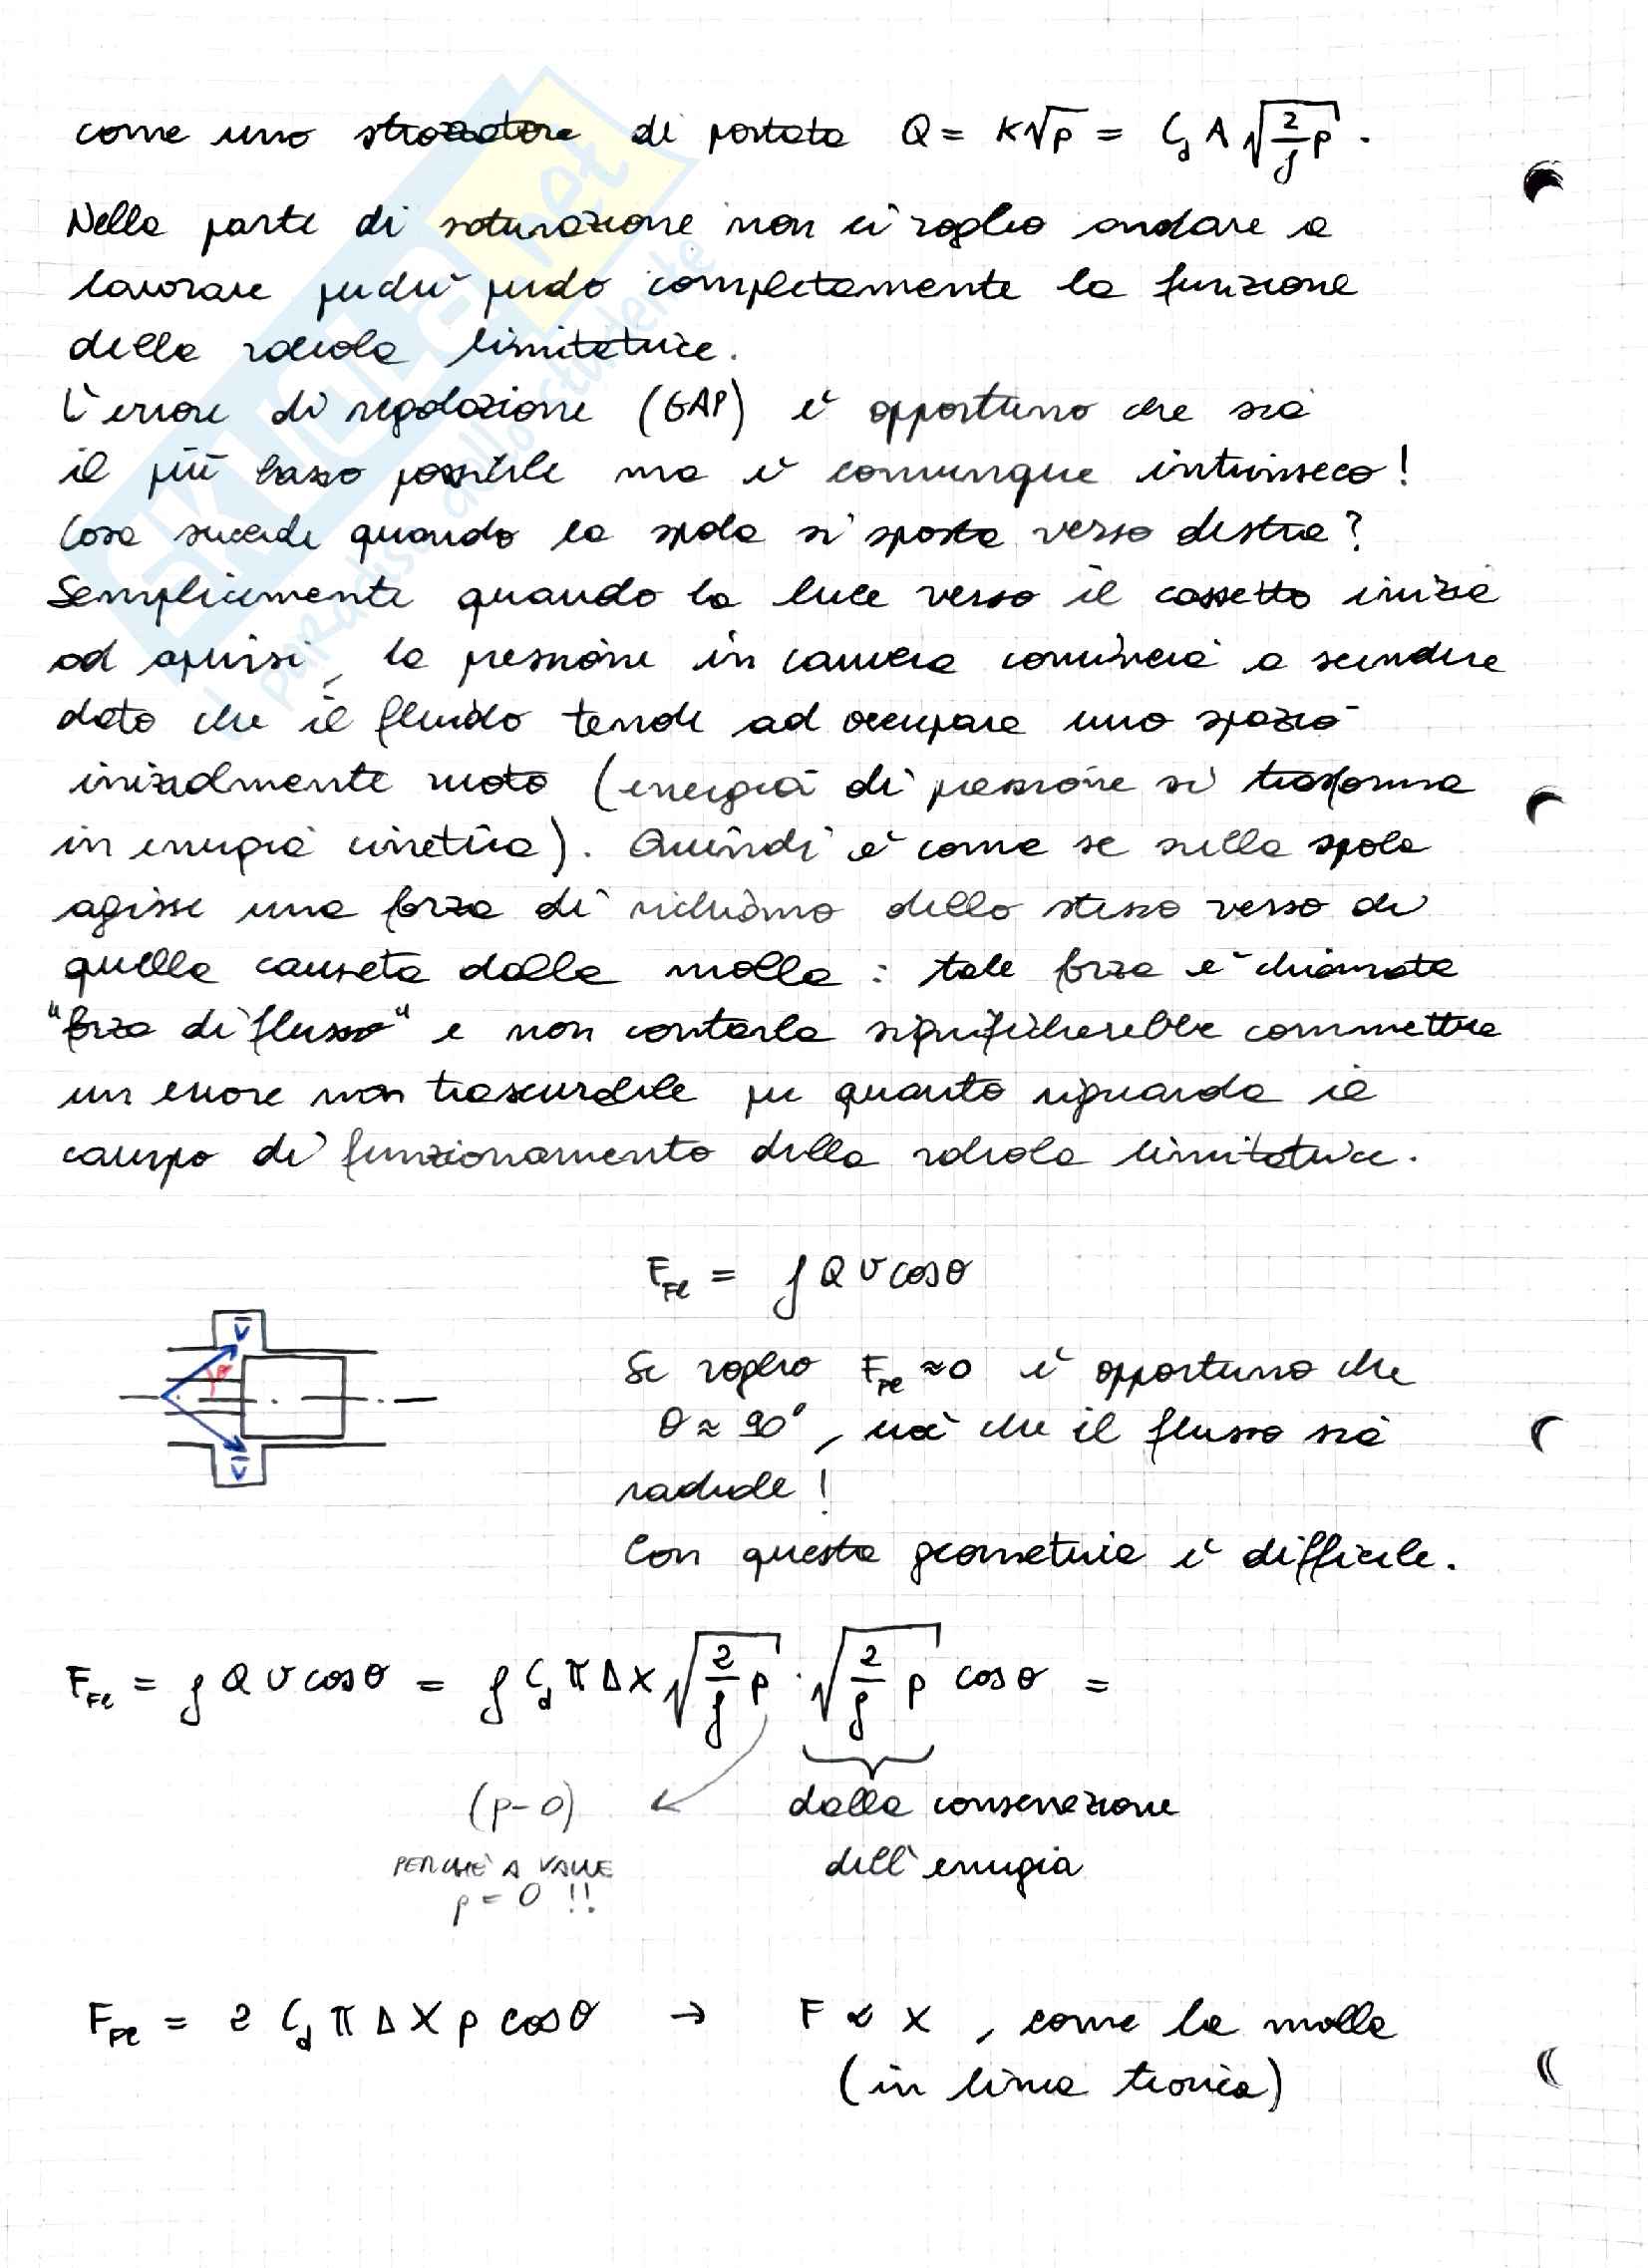 come uno strozzatore di portata Q = K√p = C_d A √(2/ρ p) .
Nella parte di saturazione non ci voglio andare a
lavorare perché perdo completamente la funzione
della valvola limitatrice.
L'errore di regolazione (GAP) è opportuno che sia
il più basso possibile ma è comunque intrinseco!
Cosa succede quando la spola si sposta verso destra?
Semplicemente quando la luce verso il cassetto inizia
ad aprirsi, la pressione in camera comincia a scendere
dato che il fluido tende ad occupare uno spazio
inizialmente vuoto (energia di pressione si trasforma
in energia cinetica). Quindi è come se sulla spola
agisse una forza di richiamo dello stesso verso di
quella causata dalla molla : tale forza è chiamata
"forza di flusso" e non contarla significherebbe commettere
un errore non trascurabile per quanto riguarda il
campo di funzionamento della valvola limitatrice.
F_Fl = ρ Q v cosθ
Se voglio F_Fl ≈ 0 è opportuno che
θ ≈ 90°, cioè che il flusso sia
radiale !
Con questa geometria è difficile.
v̄
v̄
F_Fl = ρ Q v cosθ = ρ C_d π Δ X √(2/ρ p) · √(2/ρ p) cosθ =
(p-0)
dalla conservazione
PERCHÈ A VALLE
dell'energia
p = 0 !!
F_Fl = 2 C_d π Δ X p cosθ → F ∝ X , come la molla
(in linea teorica)
SKUOLA.net
il paradiso dello studente